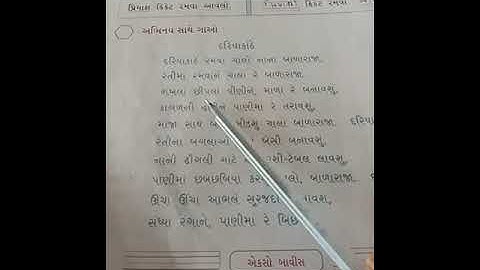 પ્રિયાંશ ક્રિકેટ રમવા આવેલો.
ક્રિકેટ રમવા
અભિનય સાથે ગાઓ
દરિયાકાંઠે
દરિયાકાંઠે રમવા ચાલો નાના બાળારાજા.
રેતીમાં રમવાને ચાલો રે બાળારાજા.
શંખલા છીપલાં વીણીને, માળા રે બનાવશું,
કાગળની હોડીને પાણીમાં રે તરાવશું,
મોજાં સાથે દોડશું ચાલો બાળારાજા.
રેતીના બંગલાઓ બેસી બનાવશું,
નાની ઢીંગલી માટે ટેબલ લાવશું,
પાણીમાં છબછબિયાં બાળારાજા.
ઊંચા ઊંચા આભલે સૂરજદાદા આવશે,
સંધ્યા રંગોને, પાણીમાં રે
એકસો બાવીસ